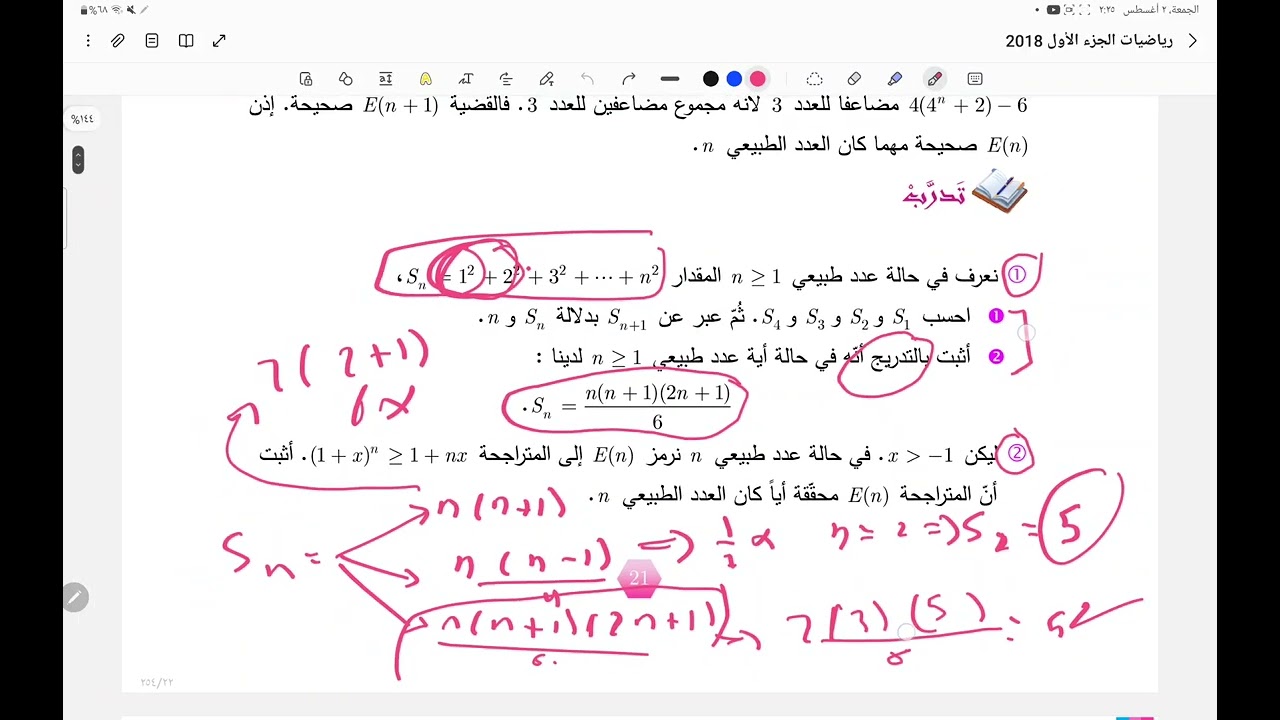 الجمعة، ٢ أغسطس ٢:٢٥
٦٨%
رياضيات الجزء الأول 2018
١٤٤%
4(4ⁿ + 2) − 6 مضاعفا للعدد 3 لانه مجموع مضاعفين للعدد 3. فالقضية E(n + 1) صحيحة. إذن
E(n) صحيحة مهما كان العدد الطبيعي n.
تَدرَّبْ
① نعرف في حالة عدد طبيعي n ≥ 1 المقدار Sₙ = 1² + 2² + 3² + ⋯ + n²،
❶ احسب S₁ و S₂ و S₃ و S₄. ثُمّ عبر عن Sₙ₊₁ بدلالة Sₙ و n.
❷ أثبت بالتدريج أنّه في حالة أية عدد طبيعي n ≥ 1 لدينا :
2 (2+1)
6 x
Sₙ = n(n + 1)(2n + 1) / 6.
② ليكن x > −1. في حالة عدد طبيعي n نرمز E(n) إلى المتراجحة (1 + x)ⁿ ≥ 1 + nx. أثبت
أنّ المتراجحة E(n) محقّقة أياً كان العدد الطبيعي n.
n(n+1)
Sₙ =
n(n−1) ⇒ x n = 2 ⇒ S₂ = 5
21
n(n+1)(2n+1) / 6 → 2(3)(5) / 6 = 5
٢٥٤/٢٢